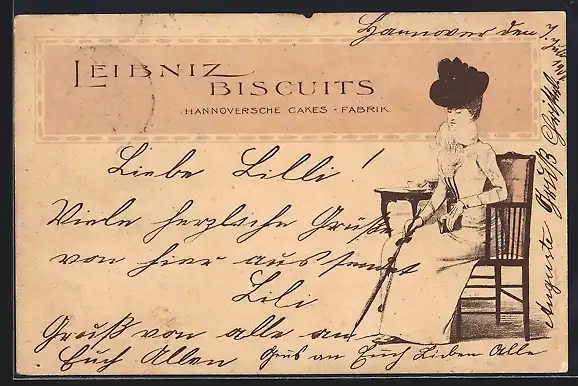 Hannover den 7. Juli
LEIBNIZ
BISCUITS
HANNOVERSCHE CAKES - FABRIK.
Liebe Lilli!
Viele herzliche Grüße
von hier aus sendet
Lili
Gruß von alle an
Euch Allen
Grus an Euch Lieben Alle
Auguste